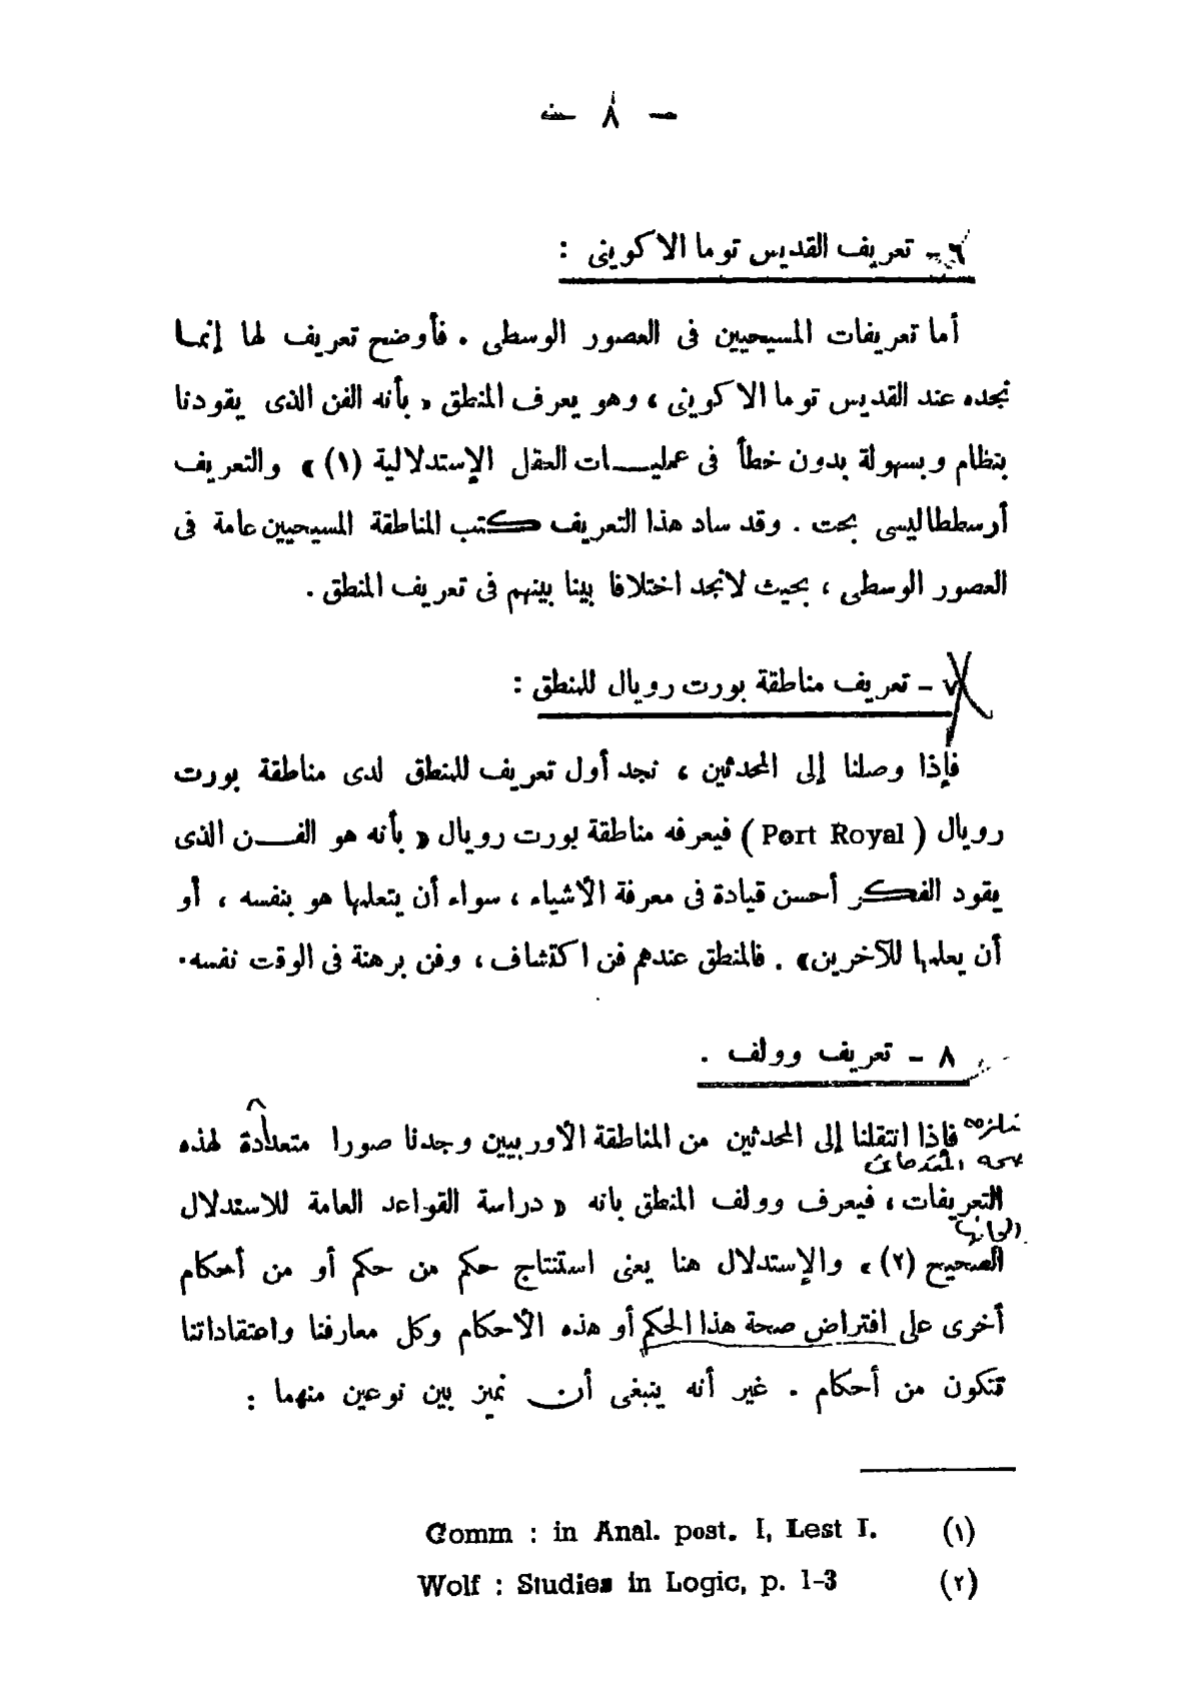 - ٨ -
٦ - تعريف القديس توما الاكوينى :
أما تعريفات المسيحيين فى العصور الوسطى . فأوضح تعريف لها إنما
نجده عند القديس توما الاكوينى ، وهو يعرف المنطق « بأنه الفن الذى يقودنا
بنظام وبسهولة بدون خطأ فى عمليات العقل الإستدلالية (١) » والتعريف
أرسططاليسى بحت . وقد ساد هذا التعريف كتب المناطقة المسيحيين عامة فى
العصور الوسطى ، بحيث لانجد اختلافا بينا بينهم فى تعريف المنطق .
٧ - تعريف مناطقة بورت رويال للمنطق :
فإذا وصلنا إلى المحدثين ، نجد أول تعريف للمنطق لدى مناطقة بورت
رويال ( Port Royal ) فيعرفه مناطقة بورت رويال « بأنه هو الفن الذى
يقود الفكر أحسن قيادة فى معرفة الأشياء ، سواء أن يتعلمها هو بنفسه ، أو
أن يعلمها للآخرين» . فالمنطق عندهم فن اكتشاف ، وفن برهنة فى الوقت نفسه .
٨ - تعريف وولف .
فإذا انتقلنا إلى المحدثين من المناطقة الأوربيين وجدنا صورا متعددة لهذه
التعريفات ، فيعرف وولف المنطق بانه « دراسة القواعد العامة للاستدلال
الصحيح (٢) » والإستدلال هنا يعنى استنتاج حكم من حكم أو من أحكام
أخرى على افتراض صحة هذا الحكم أو هذه الأحكام وكل معارفنا واعتقاداتنا
تتكون من أحكام . غير أنه ينبغى أن نميز بين نوعين منهما :
(١) Comm : in Anal. post. I, Lest I.
(٢) Wolf : Studies in Logic, p. 1-3